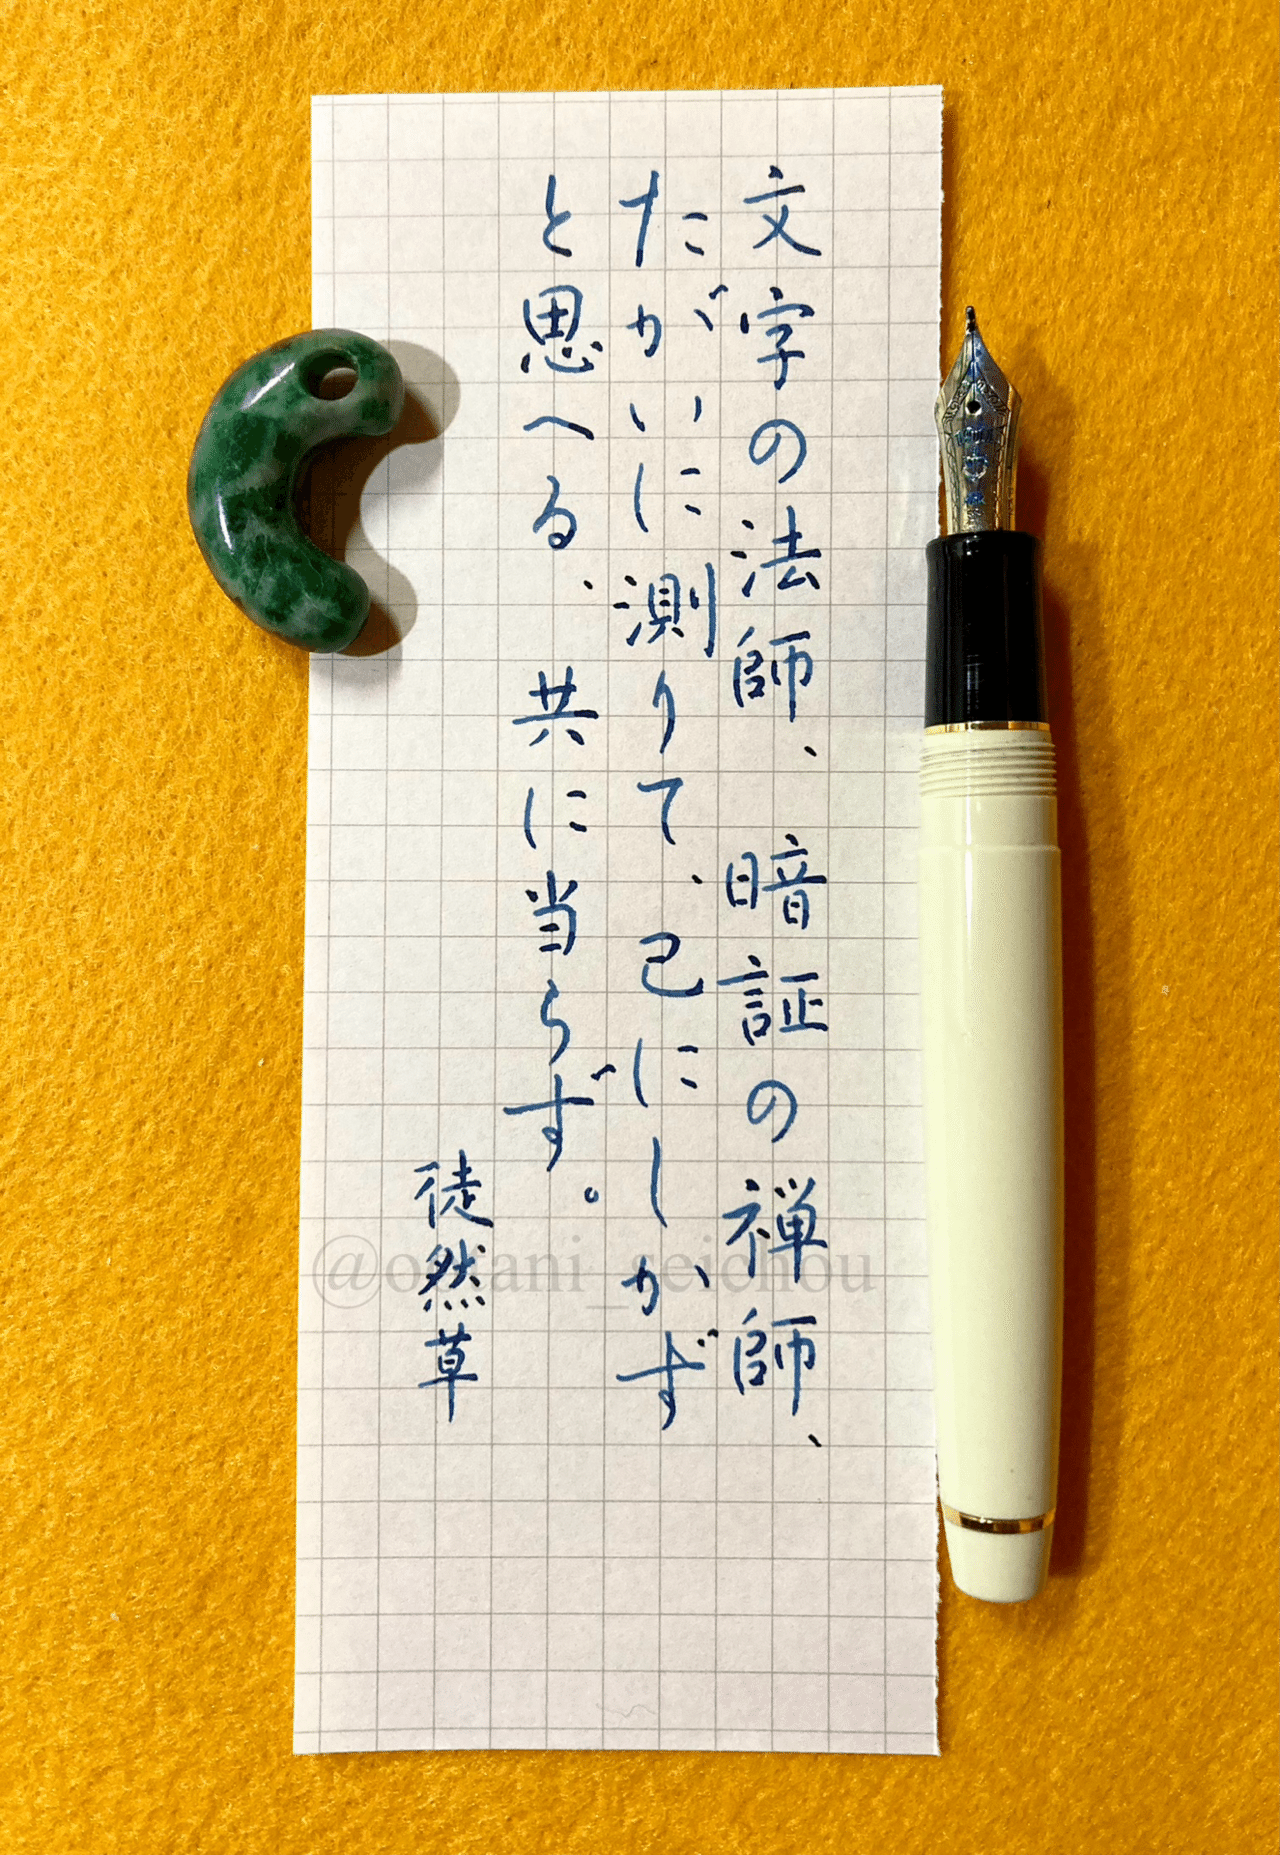 文字の法師、暗証の禅師、
たがいに測りて、己にしかず
と思へる、共に当らず。
徒然草